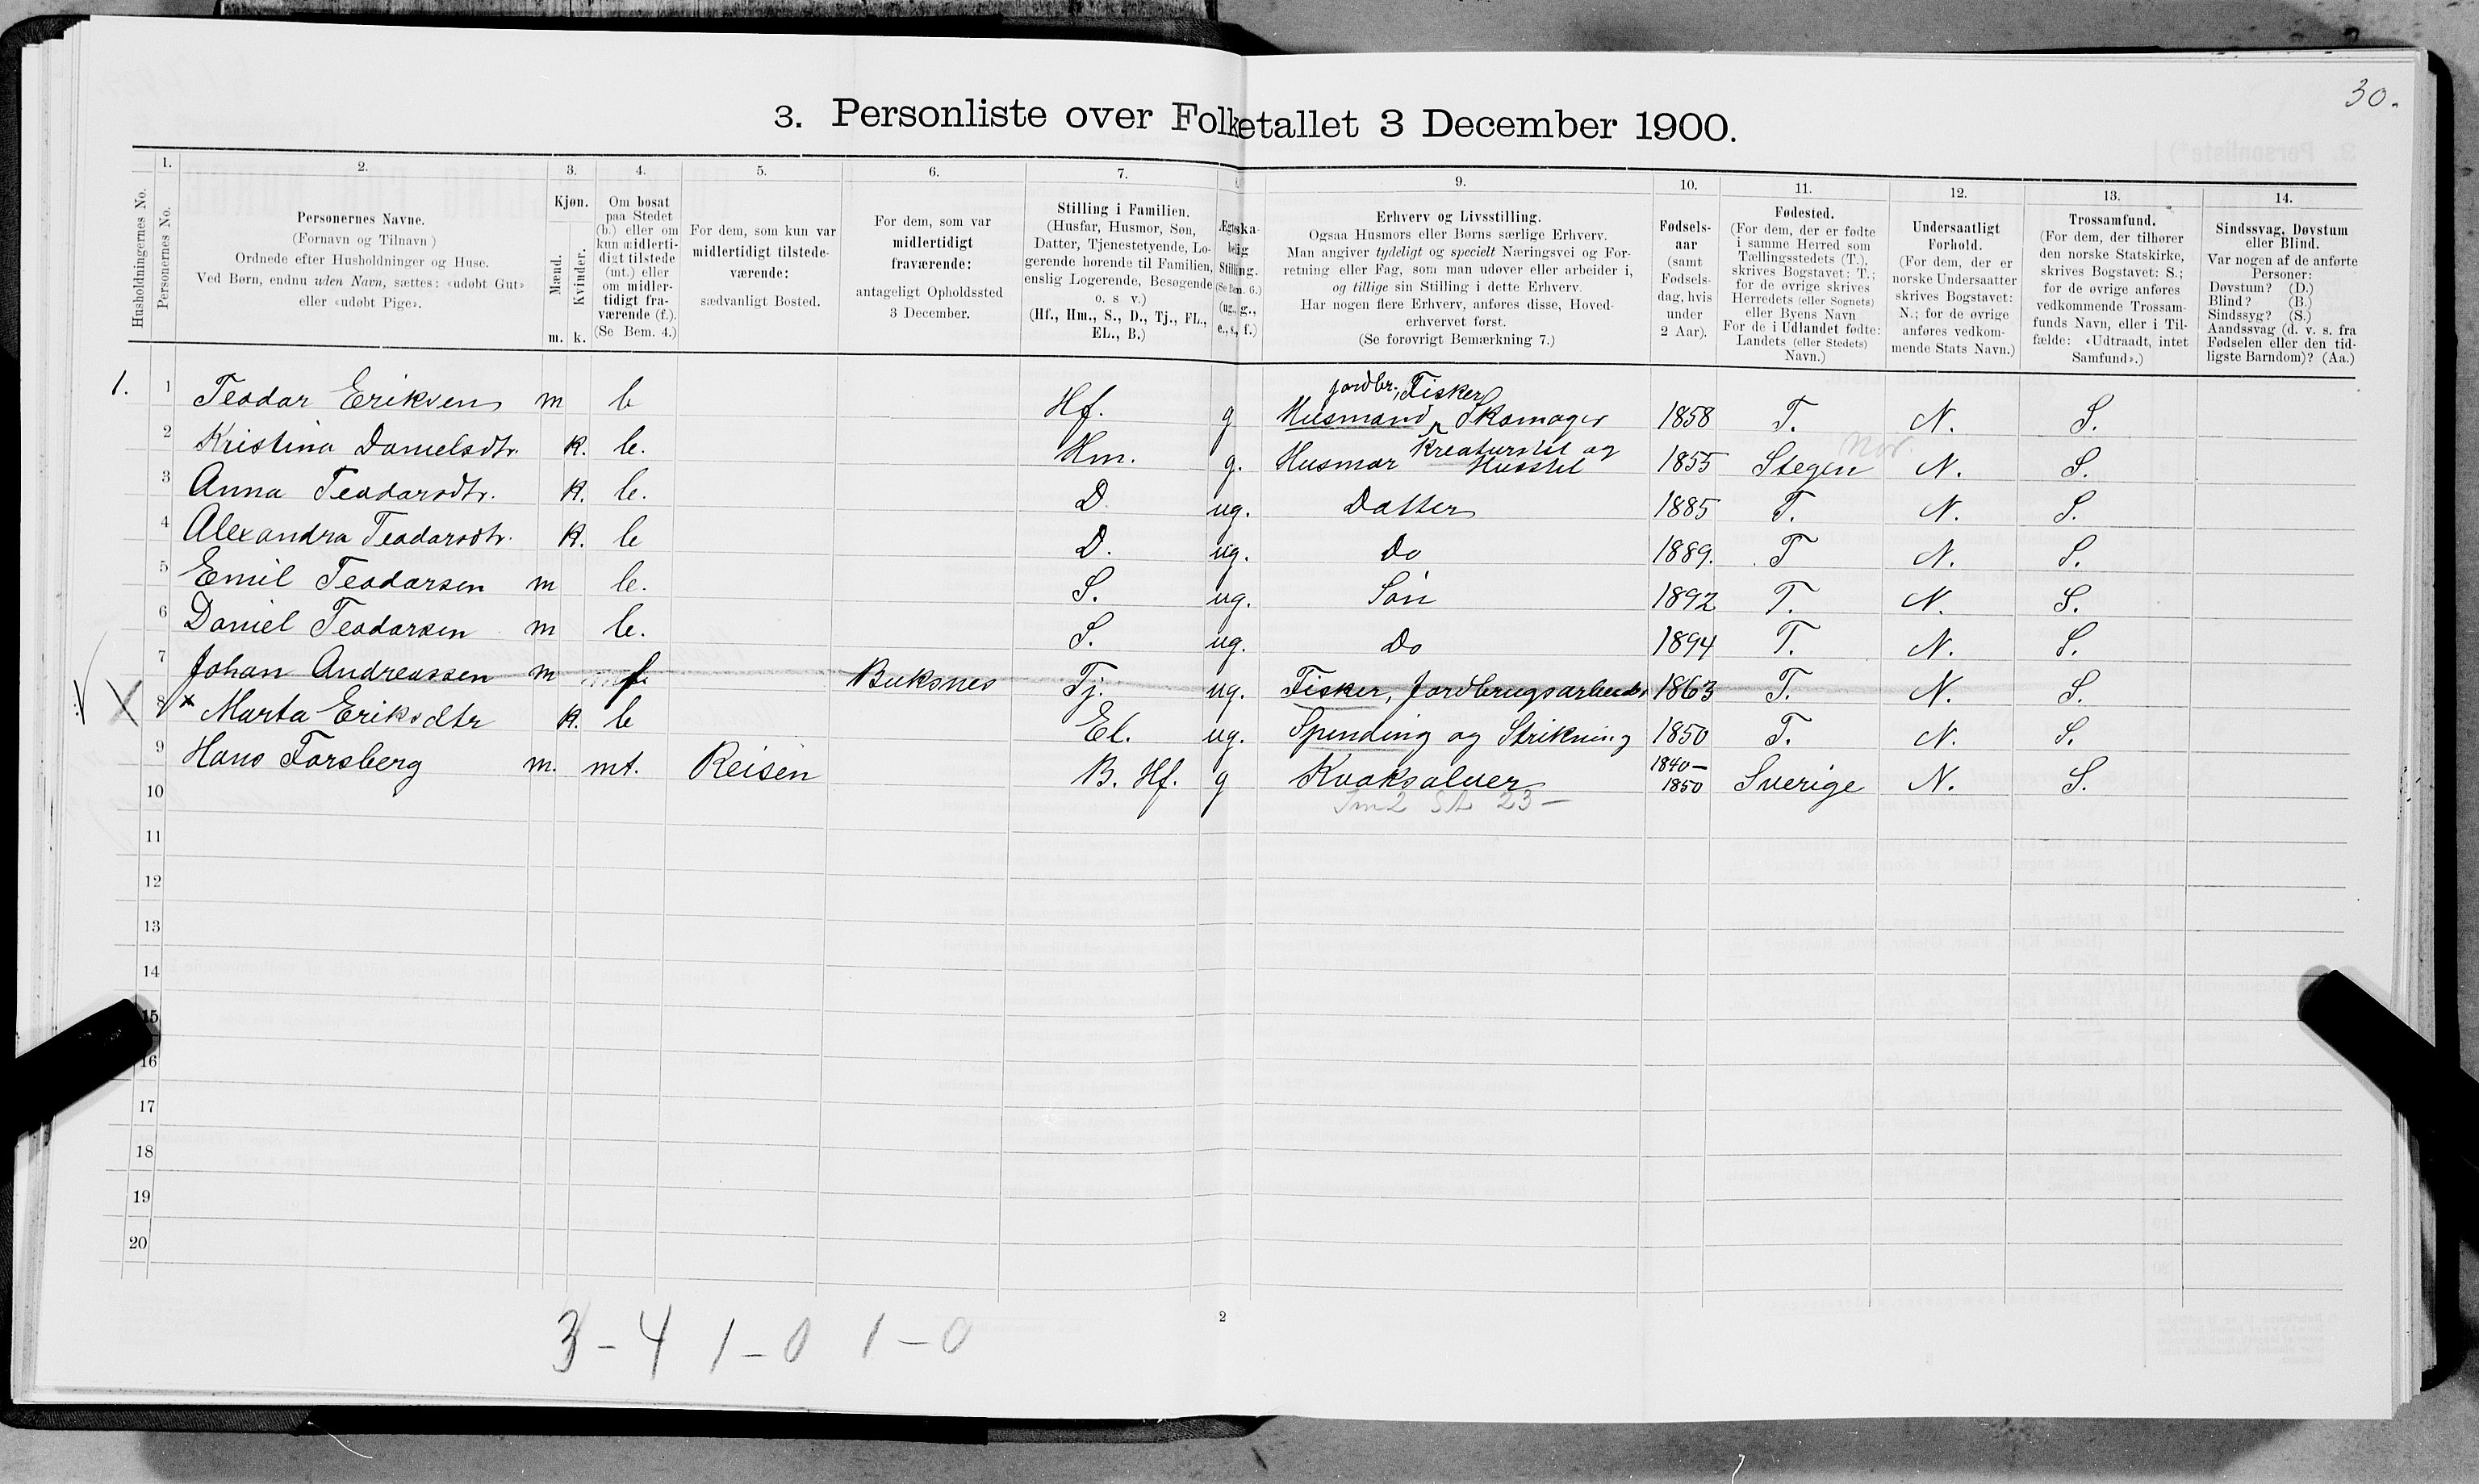 30.
3. Personliste over Folketallet 3 December 1900.
Husholdningernes No.
1. Personernes No.
2. Personernes Navne.
(Fornavn og Tilnavn)
Ordnede efter Husholdninger og Huse.
Ved Børn, endnu uden Navn, sættes: «udøbt Gut»
eller «udøbt Pige».
3. Kjøn.
Mænd. Kvinder.
m. k.
4. Om bosat
paa Stedet
(b.) eller om
kun midlerti-
digt tilstede
(mt.) eller
om midler-
tidigt fra-
værende (f.).
(Se Bem. 4.)
5. For dem, som kun var
midlertidigt tilstede-
værende:
sædvanligt Bosted.
6. For dem, som var
midlertidigt
fraværende:
antageligt Opholdssted
3 December.
7. Stilling i Familien.
(Husfar, Husmor, Søn,
Datter, Tjenestetyende, Lo-
gerende hørende til Familien,
enslig Logerende, Besøgende
o. s v.)
(Hf., Hm., S., D., Tj., FL.,
EL., B.)
Ægteska-
belig
Stilling.
(Se Bem. 6.)
(ug., g.,
e., s., f.)
9. Erhverv og Livsstilling.
Ogsaa Husmors eller Børns særlige Erhverv.
Man angiver tydeligt og specielt Næringsvei og For-
retning eller Fag, som man udøver eller arbeider i,
og tillige sin Stilling i dette Erhverv.
Har nogen flere Erhverv, anføres disse, Hoved-
erhvervet først.
(Se forøvrigt Bemærkning 7.)
10. Fødsels-
aar
(samt
Fødsels-
dag, hvis
under
2 Aar).
11. Fødested.
(For dem, der er fødte
i samme Herred som
Tællingsstedets (T.),
skrives Bogstavet: T.;
for de øvrige skrives
Herredets (eller Sognets)
eller Byens Navn
For de i Udlandet fødte:
Landets (eller Stedets)
Navn.)
12. Undersaatligt
Forhold.
(For dem, der er
norske Undersaatter
skrives Bogstavet:
N.; for de øvrige
anføres vedkom-
mende Stats Navn.)
13. Trossamfund.
(For dem, der tilhører
den norske Statskirke,
skrives Bogstavet: S.;
for de øvrige anføres
vedkommende Trossam-
funds Navn, eller i Til-
fælde: «Udtraadt, intet
Samfund».)
14. Sindssvag, Døvstum
eller Blind.
Var nogen af de anførte
Personer:
Døvstum? (D.)
Blind? (B.)
Sindssyg? (S.)
Aandssvag (d. v. s. fra
Fødselen eller den tid-
ligste Barndom)? (Aa.)
jordbr., Fisker
1. 1 Teodor Eriksen m b Hf. g Husmand, Skomager 1858 T. N. S.
Kreaturstel og
2 Kristina Danielsdtr. k. b. Hm. g. Husmor Husstel 1855 Stegen Nor. N. S.
3 Anna Teodorsdtr. k. b. D. ug. Datter 1885 T. N. S.
4 Alexandra Teodorsdtr. k. b D. ug. Do 1889. T N. S.
5 Emil Teodorsen m b. S. ug. Søn 1892 T. N. S.
6 Daniel Teodorsen m b. S. ug. Do 1894 T. N. S.
7 Johan Andreassen m f. Buksnes Tj. ug. Fisker, Jordbrugsarbeider 1863 T. N. S.
X 8 x Marta Eriksdtr k. b El. ug. Spinding og Strikning 1850 T. N. S.
9 Hans Forsberg m. mt. Reisen B. Hf. g Kvaksalver 1840–1850 Sverige N. S.
10
11
12
13
14
15
16
17
18
19
20
2
3 – 4 1 – 0 1 – 0